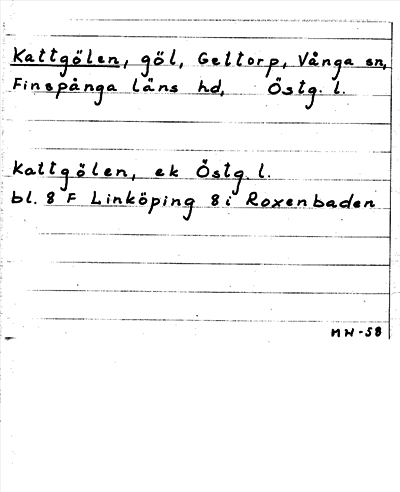 Kattgölen, göl, Geltorp, Vånga sn,
Finspånga läns hd, Östg. l.
Kattgölen, ek Östg. l.
bl. 8 F Linköping 8 i Roxenbaden
MN-58